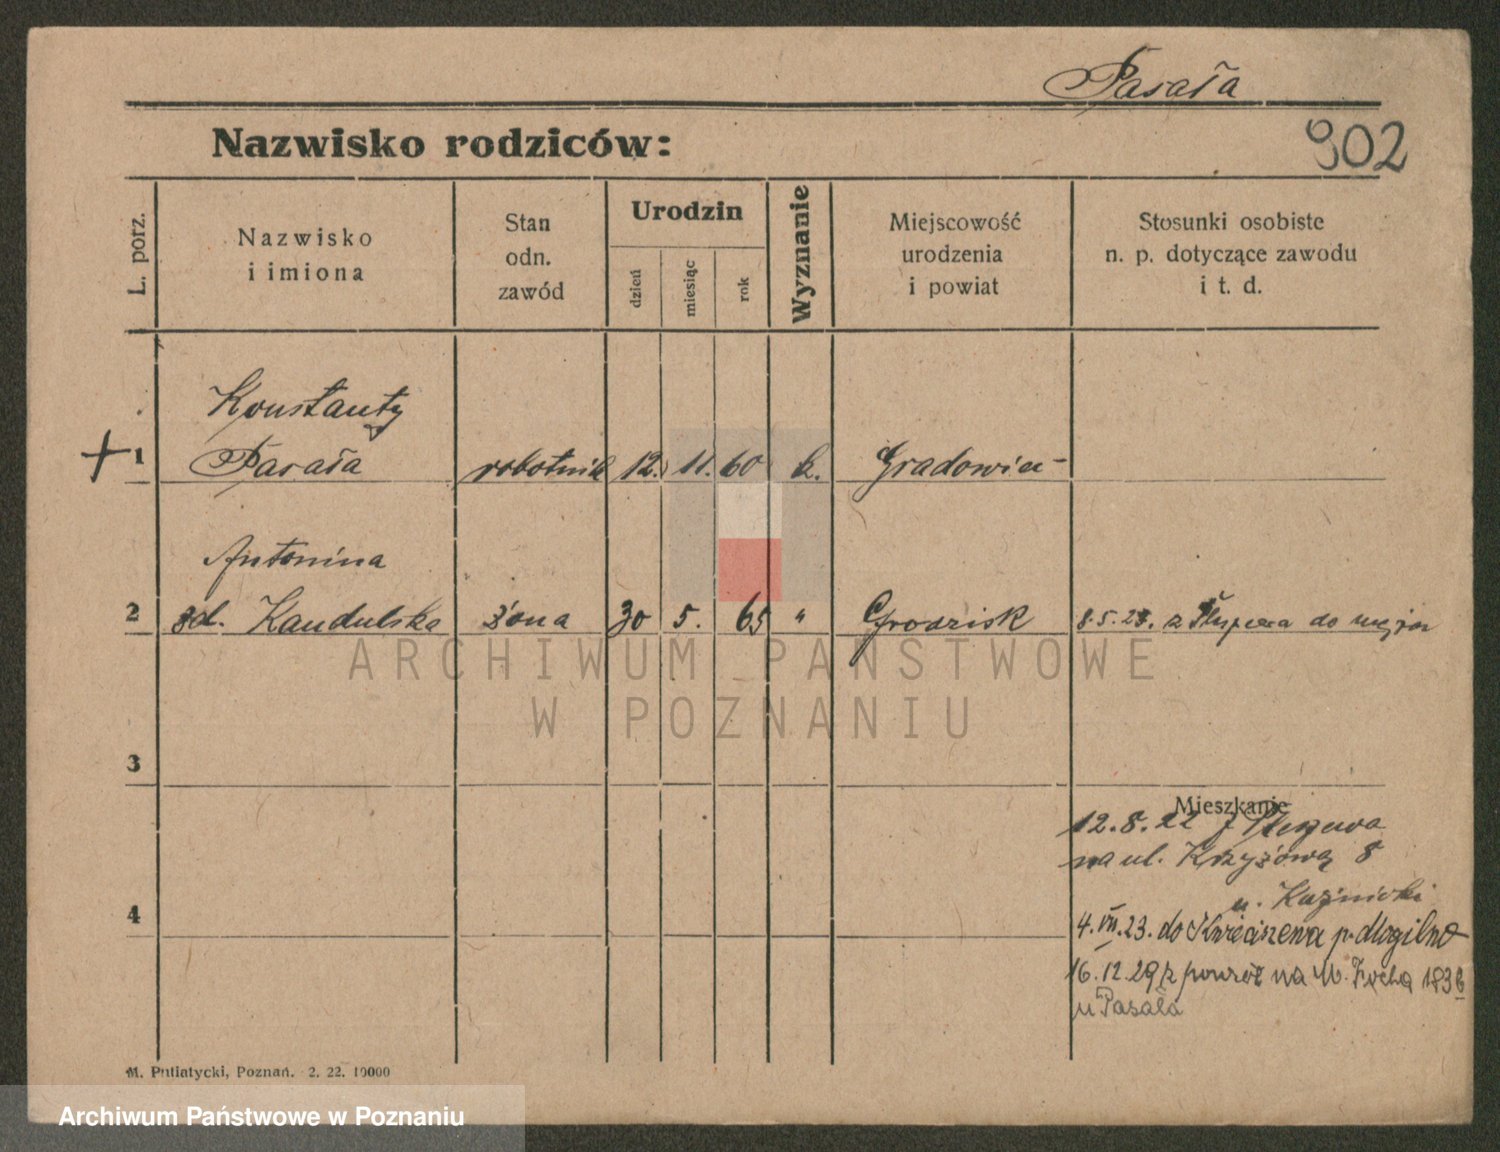 Pasała
Nazwisko rodziców:
902
L. porz.
Nazwisko
i imiona
Stan
odn.
zawód
Urodzin
dzień
miesiąc
rok
Wyznanie
Miejscowość
urodzenia
i powiat
Stosunki osobiste
n. p. dotyczące zawodu
i t. d.
Konstanty
+ 1 Pasała robotnik 12. 11. 60 k. Gradowice
Antonina
2 zd. Kandulska żona 30 5. 65 " Grodzisk 8.5.23. z Słupca do
3
Mieszkanie
12.8.22 z Pleszewa
na ul. Krzyżową 8
4
u. Kaźnicki
4.VII.23. do Kwieciszewa p. Mogilno
16.12.29 z powrót na M. Focha 183 b
u Pasała
M. Putiatycki, Poznań. 2. 22. 10000
ARCHIWUM PAŃSTWOWE
W POZNANIU
Archiwum Państwowe w Poznaniu